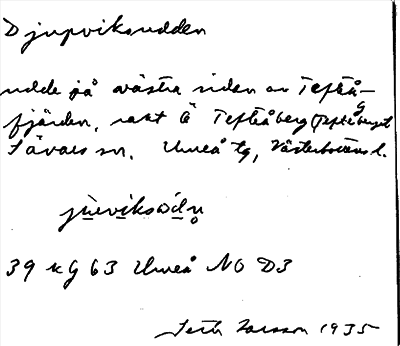 Djupviksudden
udde på västra sidan av Tefteå-
fjärden, rakt Ö Tefteåberg (Tefteåberget
Sävars sn. Umeå tg, Västerbottens l.
jʉ̀eviksὼdn̥
39 u G 63 Umeå NO D3
Seth Larsson 1935